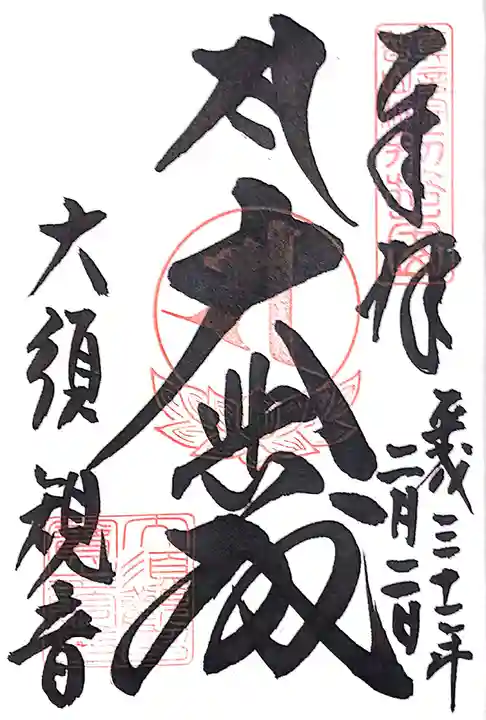 奉拝
平成三十一年
二月二日
大悲殿
大須
観音